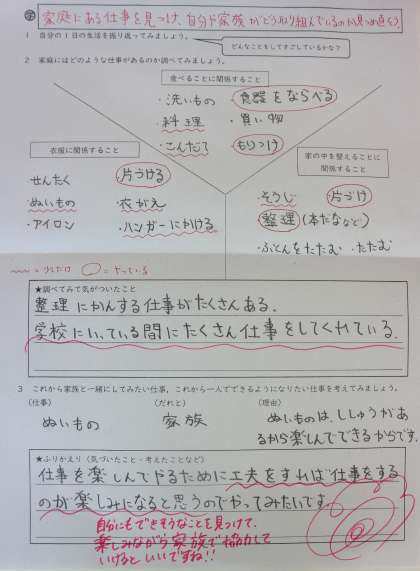 学 家庭にある仕事を見つけ、自分や家族がどう取り組んでいるのか見つめ直そう
1 自分の1日の生活を振り返ってみましょう。
どんなことをしてすごしているかな?
2 家庭にはどのような仕事があるのか調べてみましょう。
食べることに関係すること
・洗いもの ・食器をならべる
・料理 ・買い物
・こんだて もりつけ
衣服に関係すること
せんたく 片づける
ぬいもの 衣がえ
・アイロン ・ハンガーにかける
家の中を整えることに
関係すること
そうじ 片づけ
整理(本だななど)
・ふとんをたたむ ・たたむ
○=やっている
★調べてみて気がついたこと
整理にかんする仕事がたくさんある。
学校にいっている間にたくさん仕事をしてくれている。
3 これから家族と一緒にしてみたい仕事、これから一人でできるようになりたい仕事を考えてみましょう。
(仕事) (だれと) (理由)
ぬいもの 家族 ぬいものは、ししゅうがあ
るから楽しんでできるからです。
★ふりかえり(気づいたこと・考えたことなど)
仕事を楽しんでやるために工夫をすれば仕事をする
のが楽しみになると思うのでやってみたいです。
自分にもできそうなことを見つけて、
楽しみながら家族で協力して
いけるといいですね!!